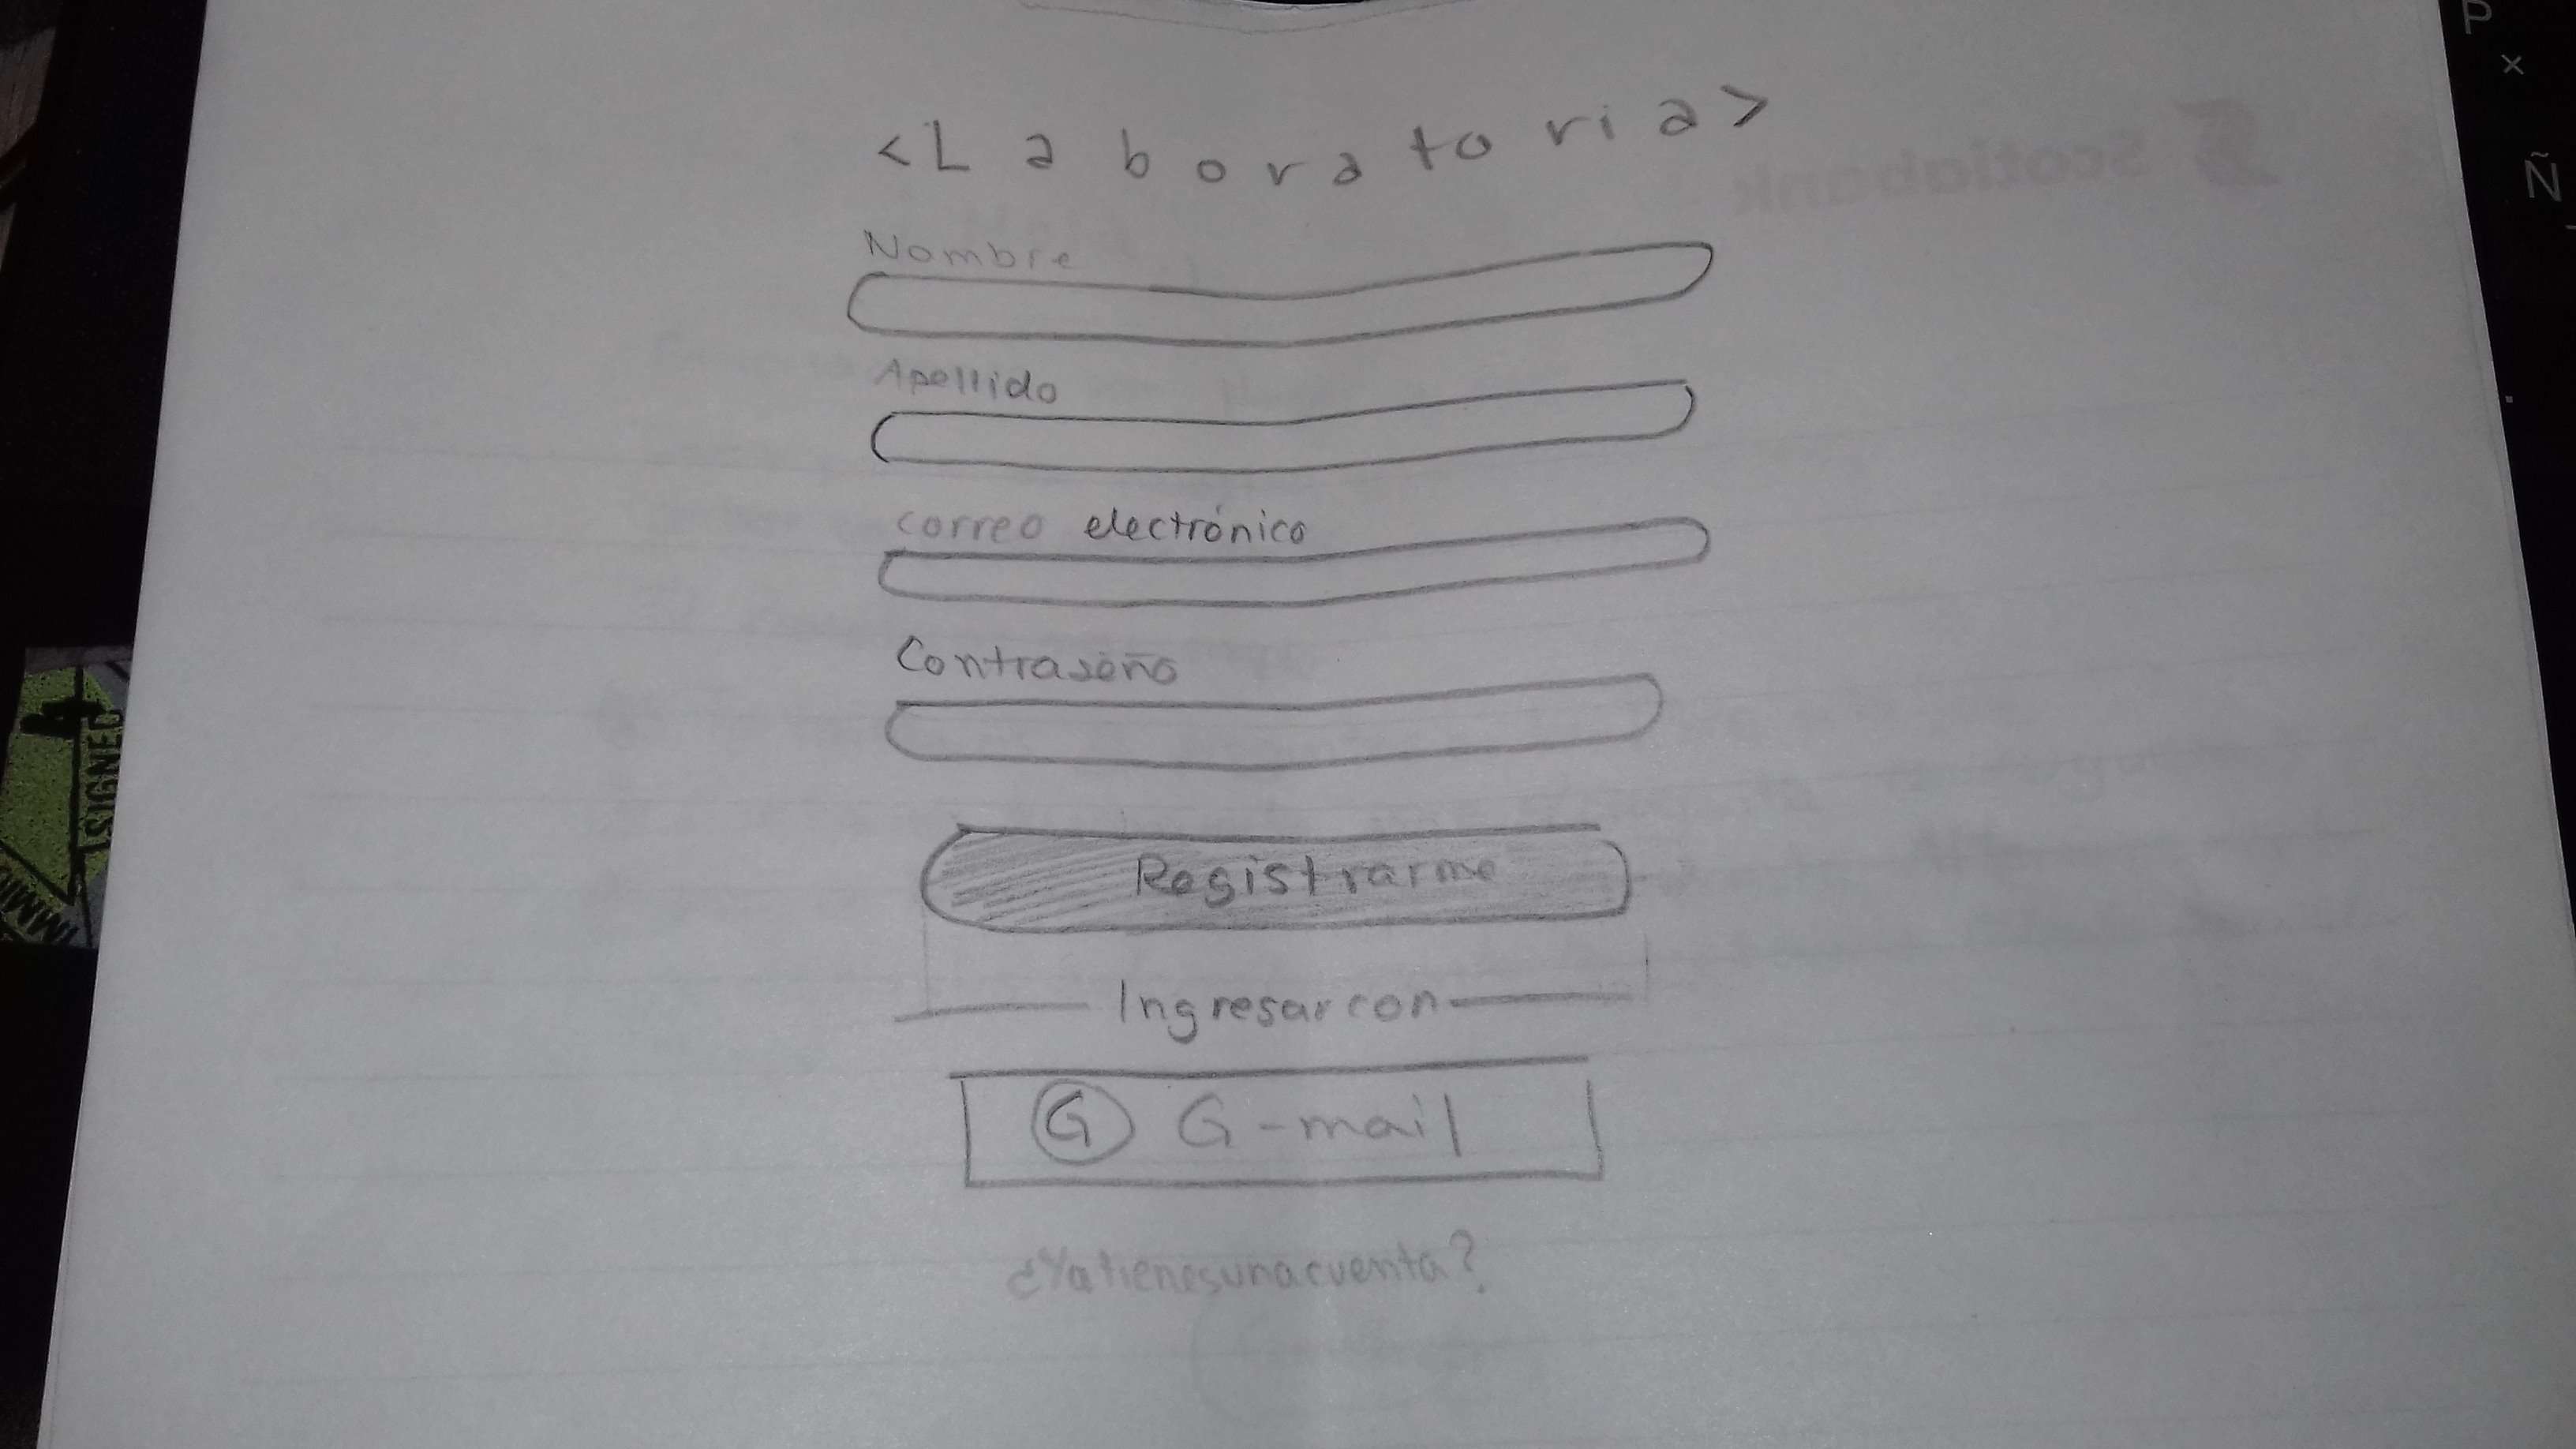 <Laboratoria>
Nombre
Apellido
correo electrónico
Contraseña
Registrarme
Ingresar con
G G-mail
¿Ya tienes una cuenta?
Scotiabank
SIGNED
P
Ñ